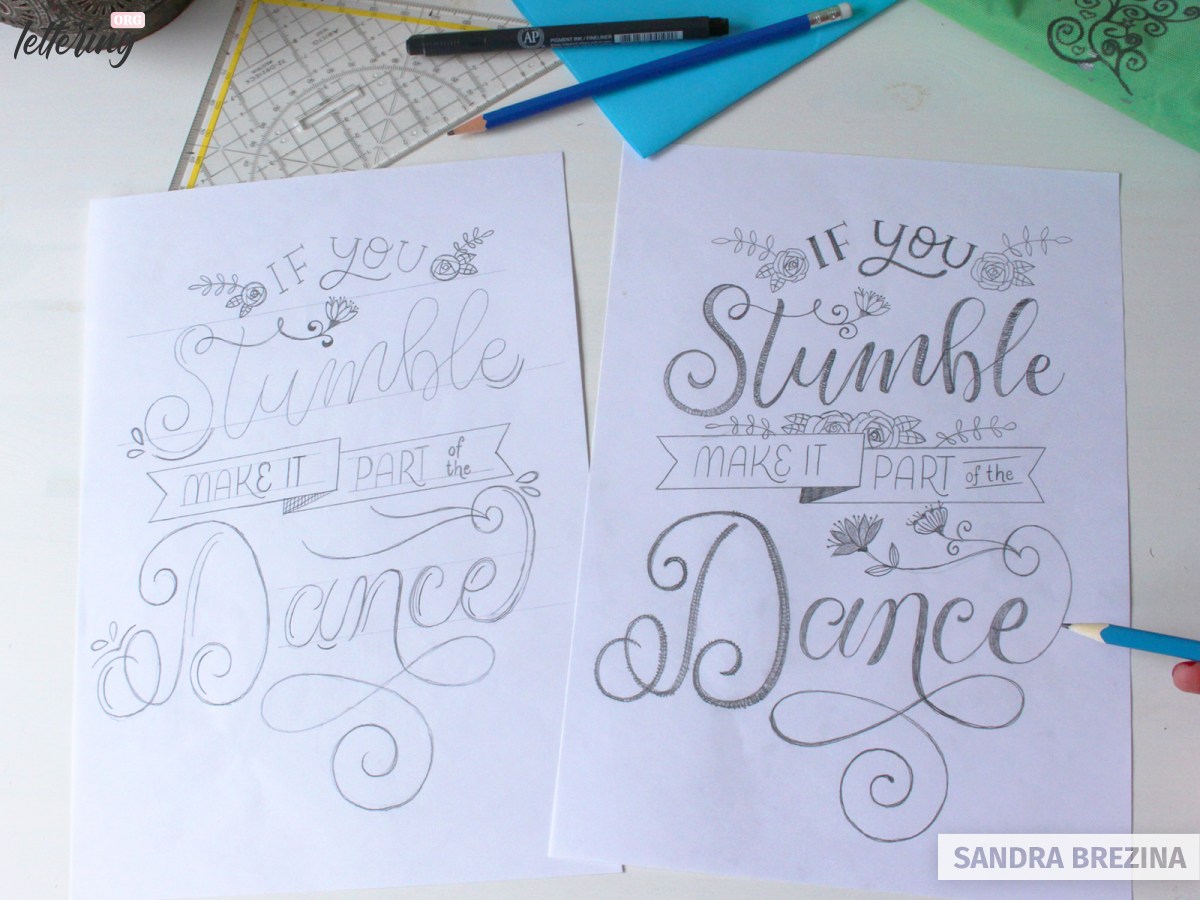 ORG
lettering
AP PIGMENT INK / FINELINER
IF YOU
Stumble
MAKE IT PART of the
Dance
IF YOU
Stumble
MAKE IT PART of the
Dance
SANDRA BREZINA